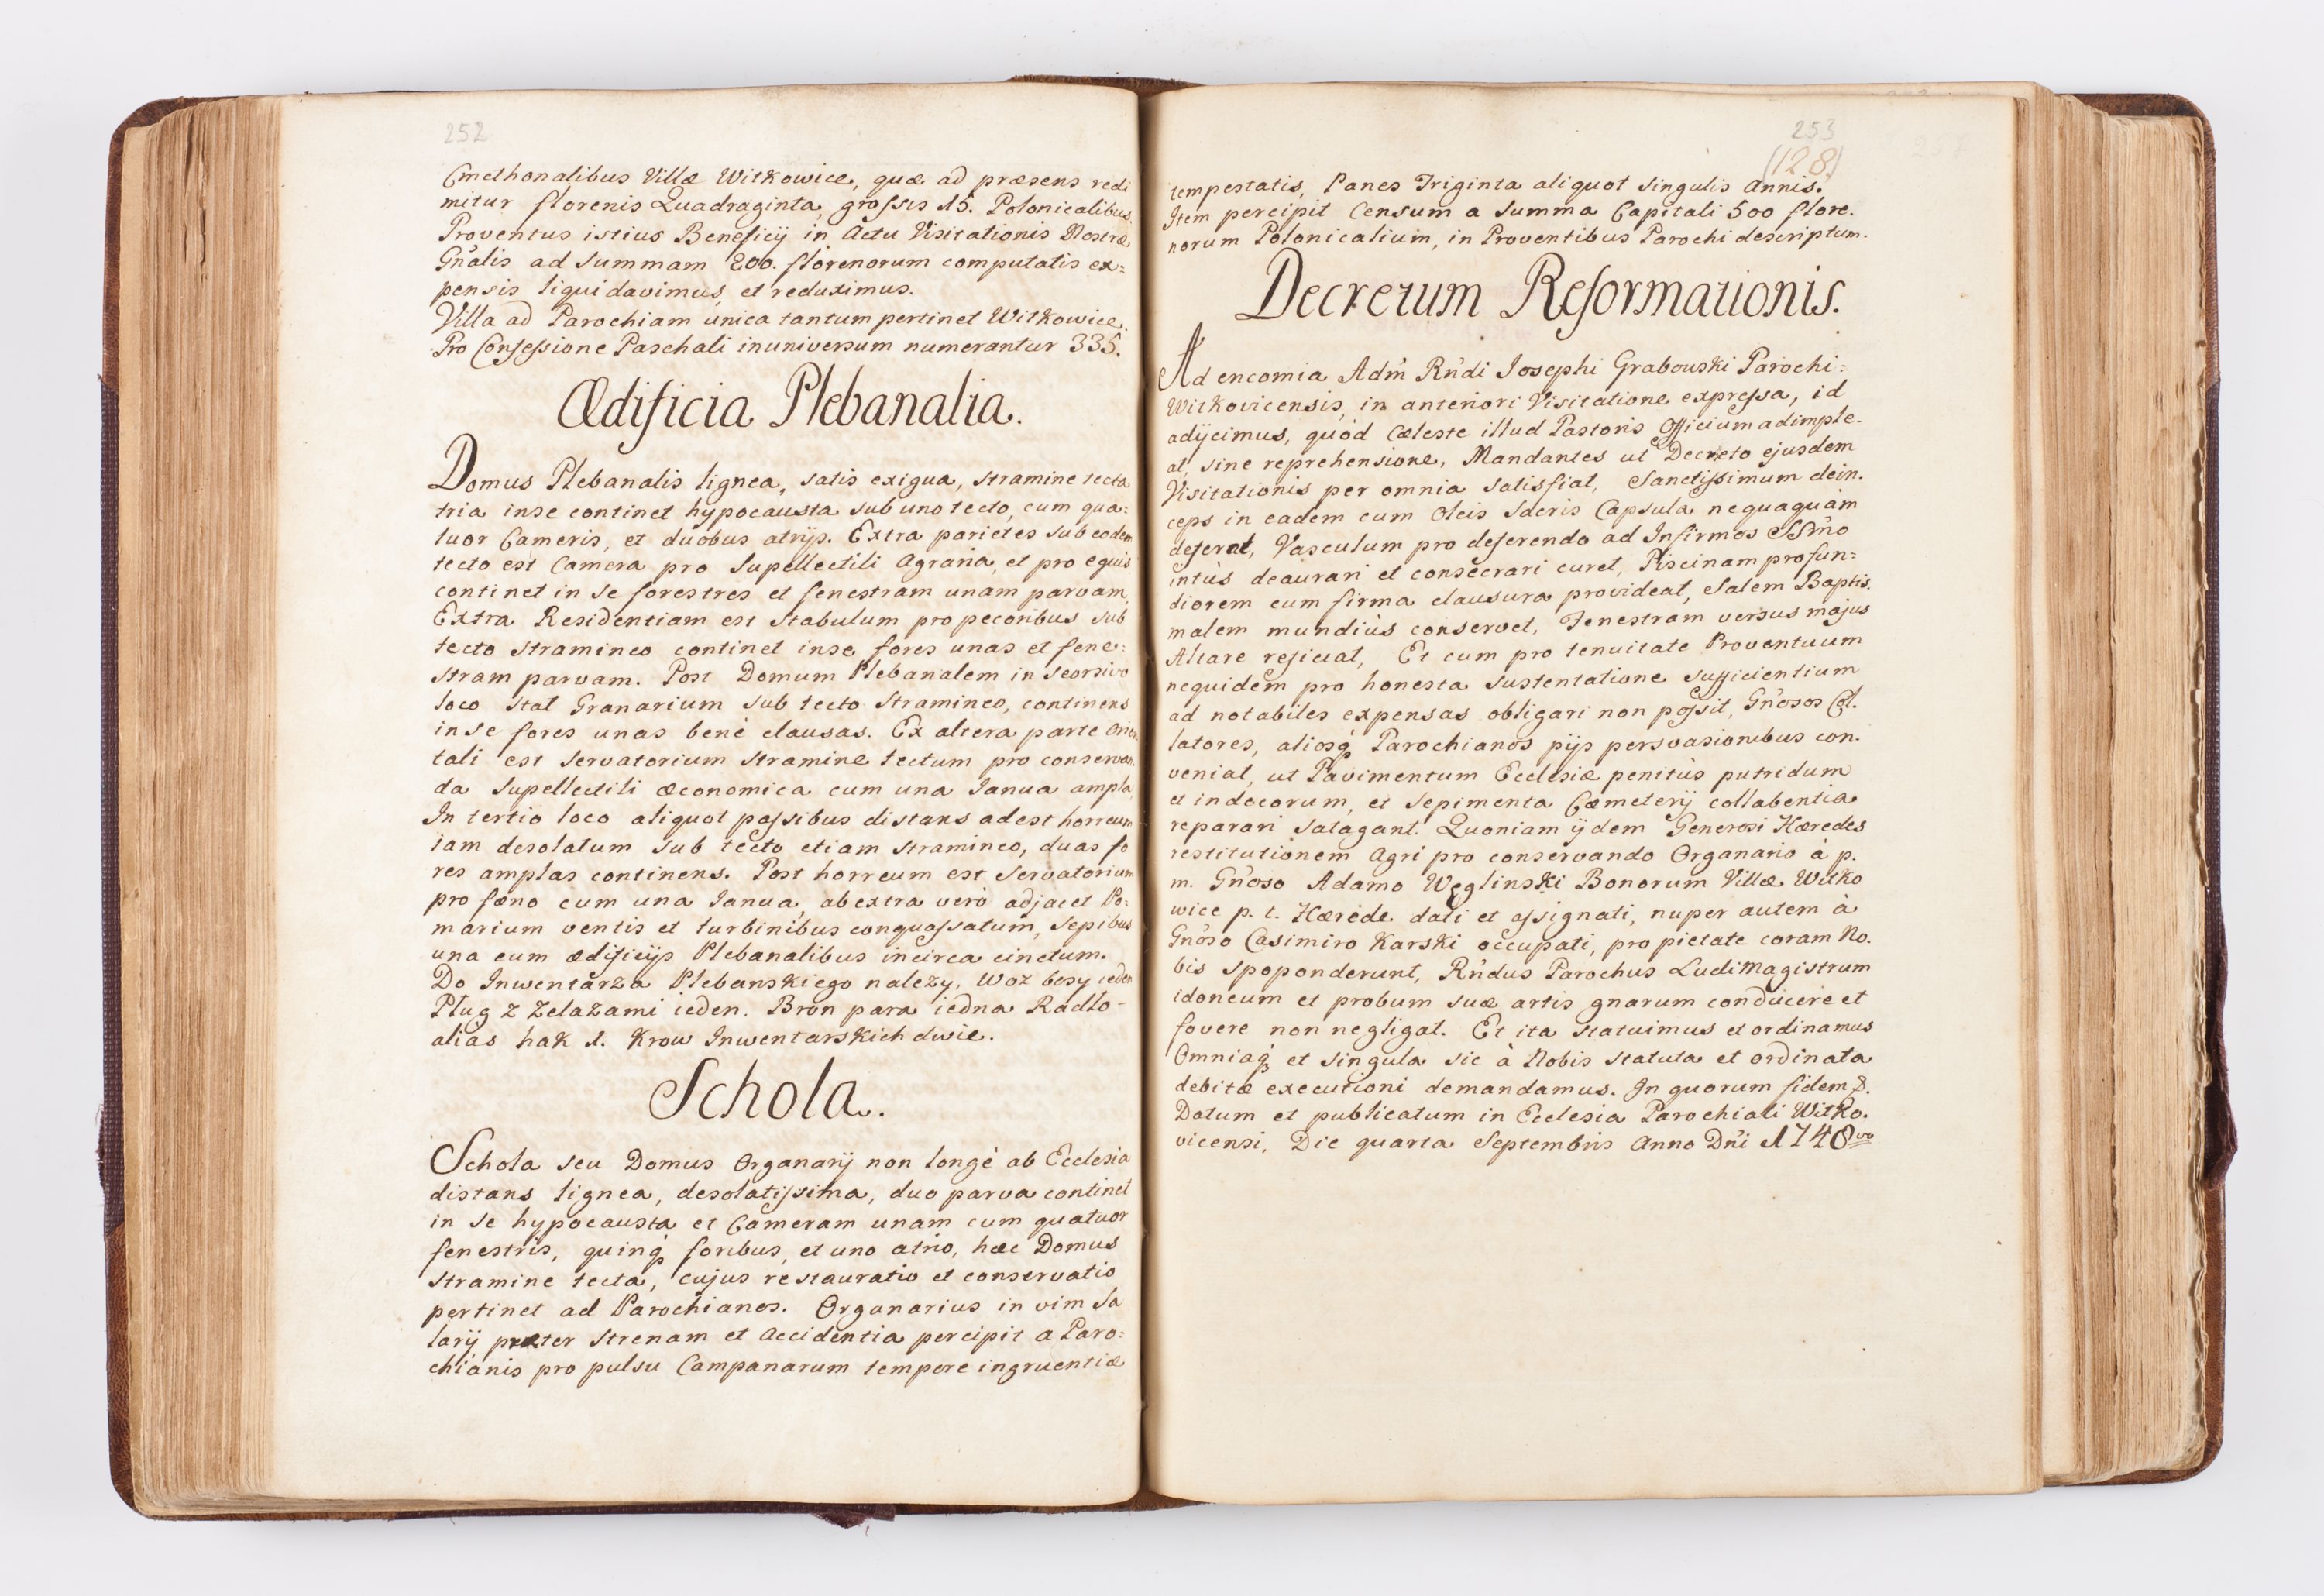 252
Cmethonalibus Villæ Witkowice, quæ ad præsens redi
mitur florenis Quadraginta, grossis 15. Polonicalibus.
Proventus istius Beneficij in Actu Visitationis Nostræ
Gn̄alis ad Summam 200. florenorum computatis ex=
pensis liquidavimus, et reduximus.
Villa ad Parochiam unica tantum pertinet Witkowice.
Pro Confessione Paschali inuniversum numerantur 335.
Ædificia Plebanalia.
Domus Plebanalis lignea, satis exigua, stramine tecta
tria inse continet hypocausta sub uno tecto, cum qua=
tuor Cameris, et duobus atrijs. Extra parietes sub eodem
tecto est Camera pro Supellectili Agraria, et pro equis
continet in se fores tres et fenestram unam parvam,
Extra Residentiam est Stabulum pro pecoribus sub
tecto stramineo continet inse fores unas et fene=
stram parvam. Post Domum Plebanalem in seorsivo
loco stat Granarium sub tecto stramineo, continens
in se fores unas benè clausas. Ex altera parte orien
tali est Servatorium stramine tectum pro conservan
da Supellectili œconomica cum una Janua ampla,
In tertio loco aliquot passibus distans adest horreum
iam desolatum sub tecto etiam stramineo, duas fo
res amplas continens. Post horreum est Servatorium
pro fœno cum una Janua, ab extra verò adjacet Po=
marium ventis et turbinibus conquassatum, Sepibus
una cum ædificijs Plebanalibus incirca cinctum.
Do Inwentarza Plebanskiego nalezy, Woz bosy ieden
Pług z Zelazami ieden. Bron para iedna Radło-
alias hak 1. Krow Inwentarskich dwie.
Schola.
Schola seu Domus Organarij non longè ab Ecclesia
distans lignea, desolatissima, duo parva continet
in se hypocausta et Cameram unam cum quatuor
fenestris, quinq̃ foribus, et uno atrio, hæc Domus
stramine tecta, cujus restauratio et conservatio
pertinet ad Parochianos. Organarius in vim Sa
larij præter Strenam et Accidentia percipit a Paro=
chianis pro pulsu Campanarum tempore ingruentiæ
253
(128)
tempestatis, Panes Triginta aliquot singulis Annis.
Item percipit Censum a Summa Capitali 500 flore.
norum Polonicalium, in Proventibus Parochi descriptum.
Decretum Reformationis.
Ad encomia Adm̄ Rn̄di Josephi Grabowski Parochi=
Witkovicensis, in anteriori Visitatione expressa, id
adijcimus, quòd Cæleste illud Pastoris Officium adimple-
at, sine reprehensione, Mandantes ut Decreto ejusdem
Visitationis per omnia satisfiat, Sanctissimum dein.
ceps in eadem cum Oleis Sacris Capsula nequaquàm
deferat, Vasculum pro deferendo ad Infirmos SSm̄o
intùs deaurari et consecrari curet, Piscinam profun=
diorem cum firma clausura provideat, Salem Baptis.
malem mundiùs conservet, Fenestram versus majus
Altare reficiat, Et cum pro tenuitate Proventuum
nequidem pro honesta sustentatione sufficientium
ad notabiles expensas obligari non possit, Gn̄osos Col.
latores, aliosq̃ Parochianos pijs persvasionibus con.
veniat, ut Pavimentum Ecclesiæ penitùs putridum
et indecorum, et Sepimenta Cæmeterij collabentia
reparari satagant. Quoniam ijdem Generosi Hæredes
restitutionem Agri pro conservando Organario à p.
m. Gn̄oso Adamo Węglinski Bonorum Villæ Witko
wice p. t. Hærede dati et assignati, nuper autem à
Gn̄oso Casimiro Karski occupati, pro pietate coram No.
bis spoponderunt, Rn̄dus Parochus Ludimagistrum
idoneum et probum suæ artis gnarum conducere et
fovere non negligat. Et ita statuimus et ordinamus
Omniaq̃ et singula sic à Nobis statuta et ordinata
debitæ executioni demandamus. In quorum fidem &.
Datum et publicatum in Ecclesia Parochiali Witko.
vicensi, Die quarta Septembris Anno Dn̄i 1748vo